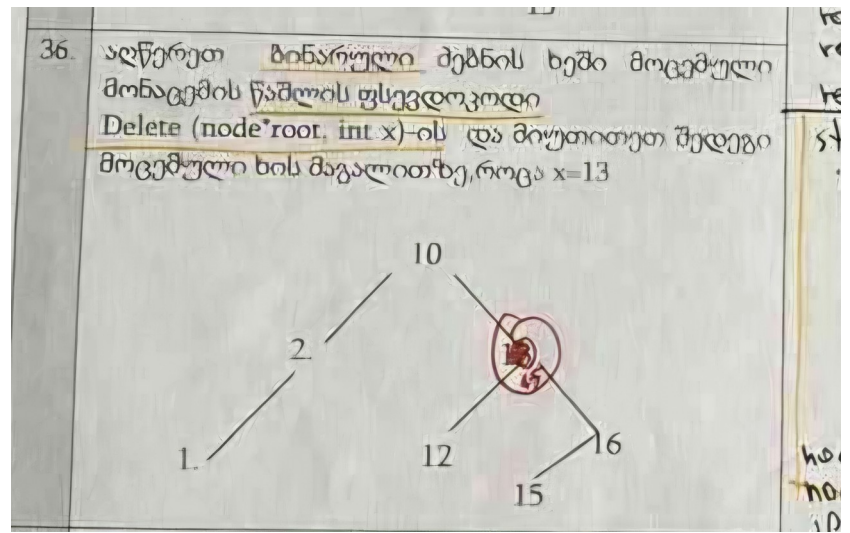 36. აღწერეთ ბინარული ძებნის ხეში მოცემული
მონაცემის წაშლის ფსევდოკოდი
Delete (node*root, int x)-ის და მიუთითეთ შედეგი
მოცემული ხის მაგალითზე, როცა x=13
10
2.
1.
12
16
15